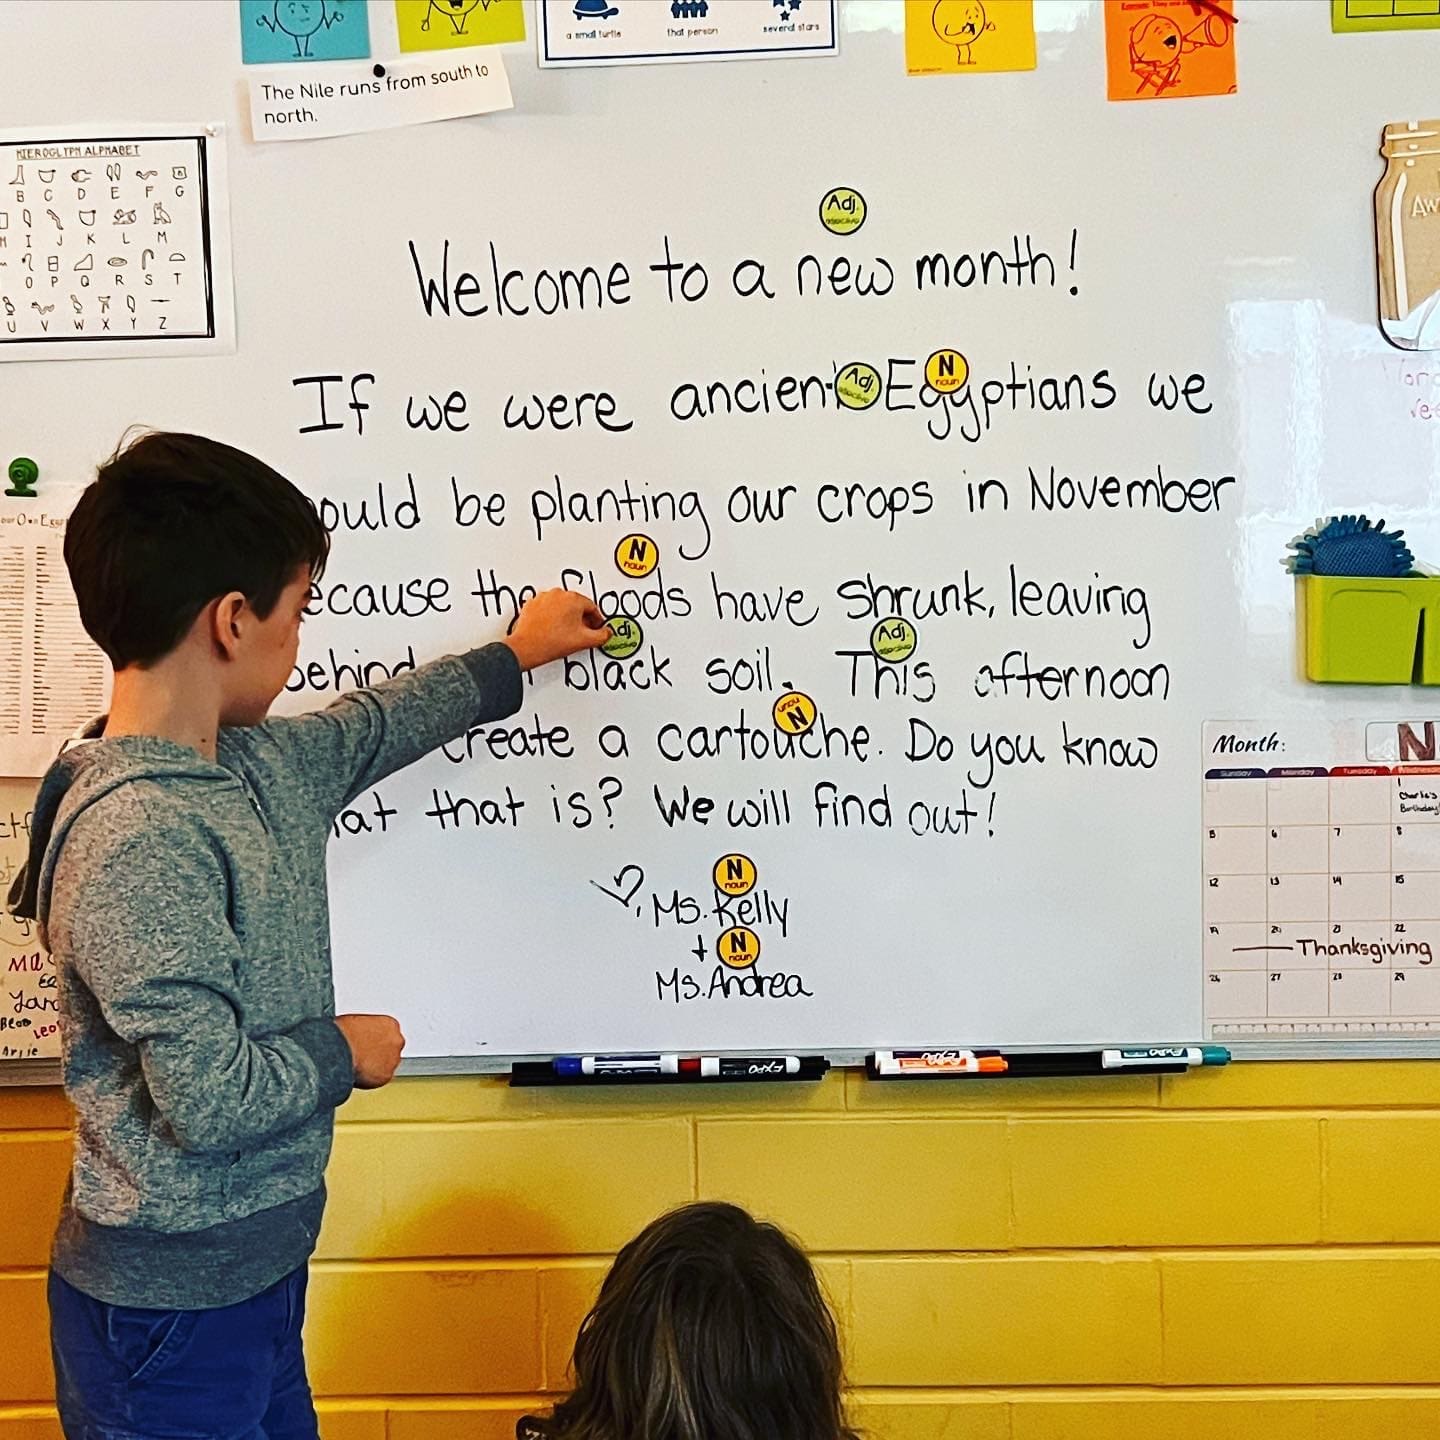 a small turtle that person several stars
The Nile runs from south to
north.
HIEROGLYPH ALPHABET
B C D E F G
H I J K L M
O P Q R S T
U V W X Y Z
Adj.
adjective
Welcome to a new month!
Adj. N
adjective noun
If we were ancient Egyptians we
ould be planting our crops in November
N
noun
ecause the floods have shrunk, leaving
Adj. Adj.
adjective adjective
behind black soil. This afternoon
N
noun
create a cartouche. Do you know
at that is? We will find out!
N
noun
Ms. Kelly
+ N
noun
Ms. Andrea
Month: N
Sunday Monday Tuesday Wednesday
1
Charlie's
Birthday
5 6 7 8
12 13 14 15
19 20 21 22
Thanksgiving
26 27 28 29
EXPO EXPO EXPO EXPO